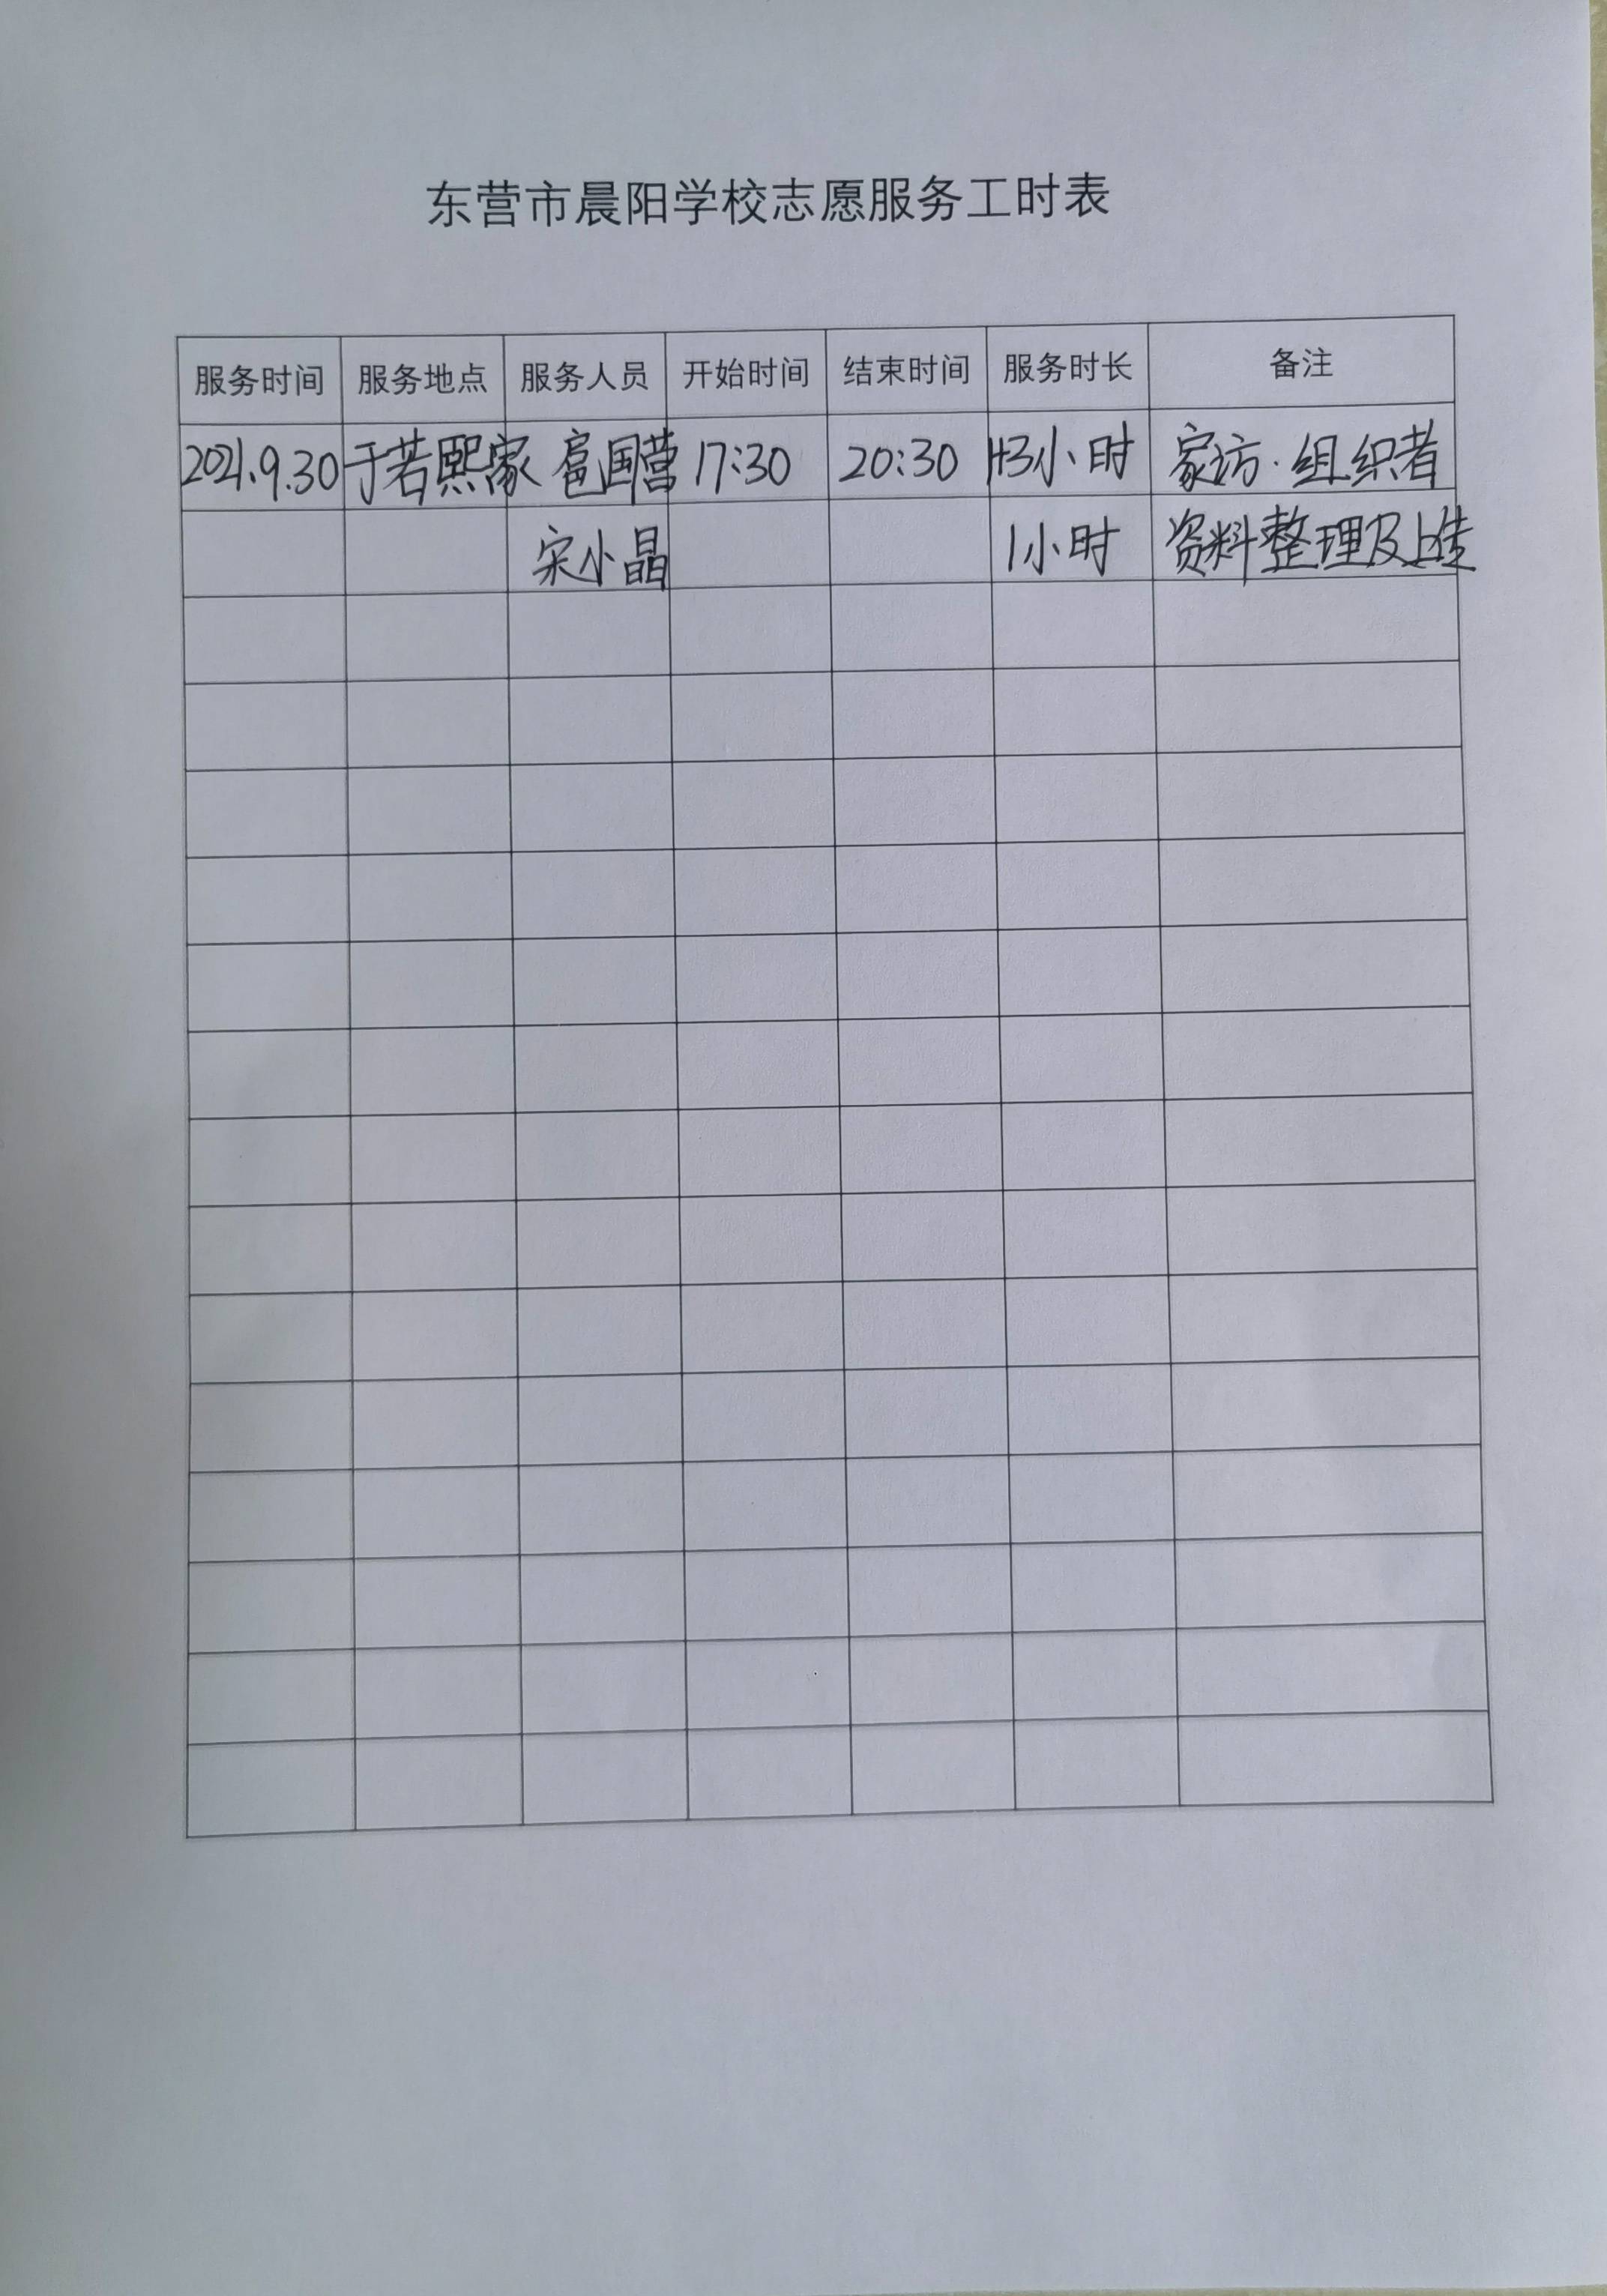 东营市晨阳学校志愿服务工时表
服务时间 服务地点 服务人员 开始时间 结束时间 服务时长 备注
2021.9.30 于若熙家 扈国营 17:30 20:30 1+3小时 家访·组织者
宋小晶 1小时 资料整理及上传